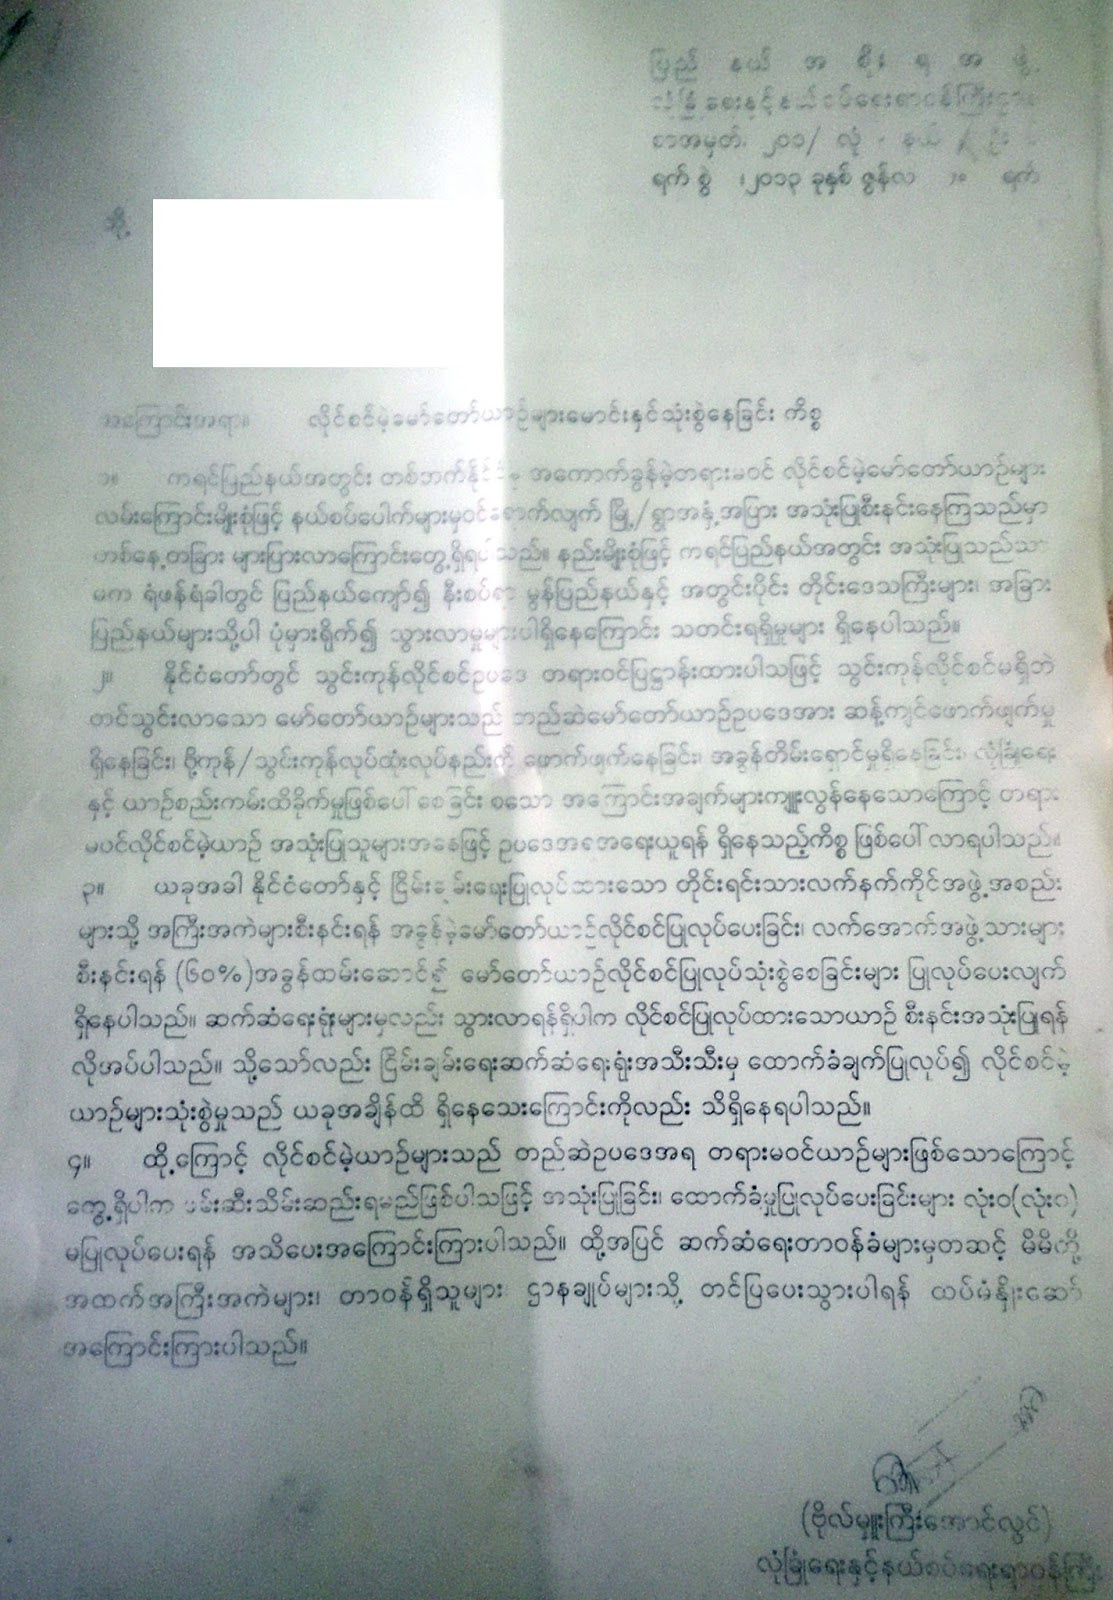 ပြည် နယ် အ စိုး ရ အ ဖွဲ့
လုံခြုံရေးနှင့်နယ်စပ်ရေးရာဝန်ကြီးဌာန
စာအမှတ်၊ ၂၀၁/ လုံ - နယ် / ဦး
ရက်စွဲ ၊၂၀၁၃ ခုနှစ် ဇွန်လ ရက်
သို့
အကြောင်းအရာ။ လိုင်စင်မဲ့မော်တော်ယာဉ်များမောင်းနှင်သုံးစွဲနေခြင်း ကိစ္စ
၁။ ကရင်ပြည်နယ်အတွင်း တစ်ဘက်နိုင်ငံမှ အကောက်ခွန်မဲ့တရားမဝင် လိုင်စင်မဲ့မော်တော်ယာဉ်များ
လမ်းကြောင်းမျိုးစုံဖြင့် နယ်စပ်ပေါက်များမှဝင်ရောက်လျက် မြို့/ရွာအနှံ့အပြား အသုံးပြုစီးနင်းနေကြသည်မှာ
တစ်နေ့တခြား များပြားလာကြောင်းတွေ့ရှိရပါသည်။ နည်းမျိုးစုံဖြင့် ကရင်ပြည်နယ်အတွင်း အသုံးပြုသည်သာ
မက ရံဖန်ရံခါတွင် ပြည်နယ်ကျော်၍ နီးစပ်ရာ မွန်ပြည်နယ်နှင့် အတွင်းပိုင်း တိုင်းဒေသကြီးများ၊ အခြား
ပြည်နယ်များသို့ပါ ပုံမှားရိုက်၍ သွားလာမှုများပါရှိနေကြောင်း သတင်းရရှိမှုများ ရှိနေပါသည်။
၂။ နိုင်ငံတော်တွင် သွင်းကုန်လိုင်စင်ဥပဒေ တရားဝင်ပြဋ္ဌာန်းထားပါသဖြင့် သွင်းကုန်လိုင်စင်မရှိဘဲ
တင်သွင်းလာသော မော်တော်ယာဉ်များသည် တည်ဆဲမော်တော်ယာဉ်ဥပဒေအား ဆန့်ကျင်ဖောက်ဖျက်မှု
ရှိနေခြင်း၊ ပို့ကုန်/သွင်းကုန်လုပ်ထုံးလုပ်နည်းကို ဖောက်ဖျက်နေခြင်း၊ အခွန်တိမ်းရှောင်မှုရှိနေခြင်း၊ လုံခြုံရေး
နှင့် ယာဉ်စည်းကမ်းထိခိုက်မှုဖြစ်ပေါ်စေခြင်း စသော အကြောင်းအချက်များကျူးလွန်နေသောကြောင့် တရား
မဝင်လိုင်စင်မဲ့ယာဉ် အသုံးပြုသူများအနေဖြင့် ဥပဒေအရအရေးယူရန် ရှိနေသည့်ကိစ္စ ဖြစ်ပေါ်လာရပါသည်။
၃။ ယခုအခါ နိုင်ငံတော်နှင့် ငြိမ်းချမ်းရေးပြုလုပ်ထားသော တိုင်းရင်းသားလက်နက်ကိုင်အဖွဲ့အစည်း
များသို့ အကြီးအကဲများစီးနင်းရန် အခွန်မဲ့မော်တော်ယာဉ်လိုင်စင်ပြုလုပ်ပေးခြင်း၊ လက်အောက်အဖွဲ့သားများ
စီးနင်းရန် (၆၀%)အခွန်ထမ်းဆောင်၍ မော်တော်ယာဉ်လိုင်စင်ပြုလုပ်သုံးစွဲစေခြင်းများ ပြုလုပ်ပေးလျက်
ရှိနေပါသည်။ ဆက်ဆံရေးရုံးများမှလည်း သွားလာရန်ရှိပါက လိုင်စင်ပြုလုပ်ထားသောယာဉ် စီးနင်းအသုံးပြုရန်
လိုအပ်ပါသည်။ သို့သော်လည်း ငြိမ်းချမ်းရေးဆက်ဆံရေးရုံးအသီးသီးမှ ထောက်ခံချက်ပြုလုပ်၍ လိုင်စင်မဲ့
ယာဉ်များသုံးစွဲမှုသည် ယခုအချိန်ထိ ရှိနေသေးကြောင်းကိုလည်း သိရှိနေရပါသည်။
၄။ ထို့ကြောင့် လိုင်စင်မဲ့ယာဉ်များသည် တည်ဆဲဥပဒေအရ တရားမဝင်ယာဉ်များဖြစ်သောကြောင့်
တွေ့ရှိပါက ဖမ်းဆီးသိမ်းဆည်းရမည်ဖြစ်ပါသဖြင့် အသုံးပြုခြင်း၊ ထောက်ခံမှုပြုလုပ်ပေးခြင်းများ လုံးဝ(လုံးဝ)
မပြုလုပ်ပေးရန် အသိပေးအကြောင်းကြားပါသည်။ ထို့အပြင် ဆက်ဆံရေးတာဝန်ခံများမှတဆင့် မိမိတို့
အထက်အကြီးအကဲများ၊ တာဝန်ရှိသူများ ဌာနချုပ်များသို့ တင်ပြပေးသွားပါရန် ထပ်မံနှိုးဆော်
အကြောင်းကြားပါသည်။
(ဗိုလ်မှူးကြီးအောင်လွင်)
လုံခြုံရေးနှင့်နယ်စပ်ရေးရာဝန်ကြီး